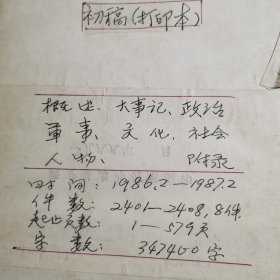 初稿(打印本)
概述、大事记、政治
军事、文化、社会
人物、附录
时间:1986.2—1987.2
件数:2401—2408,8件
起止页数:1—579页
字数:347400字